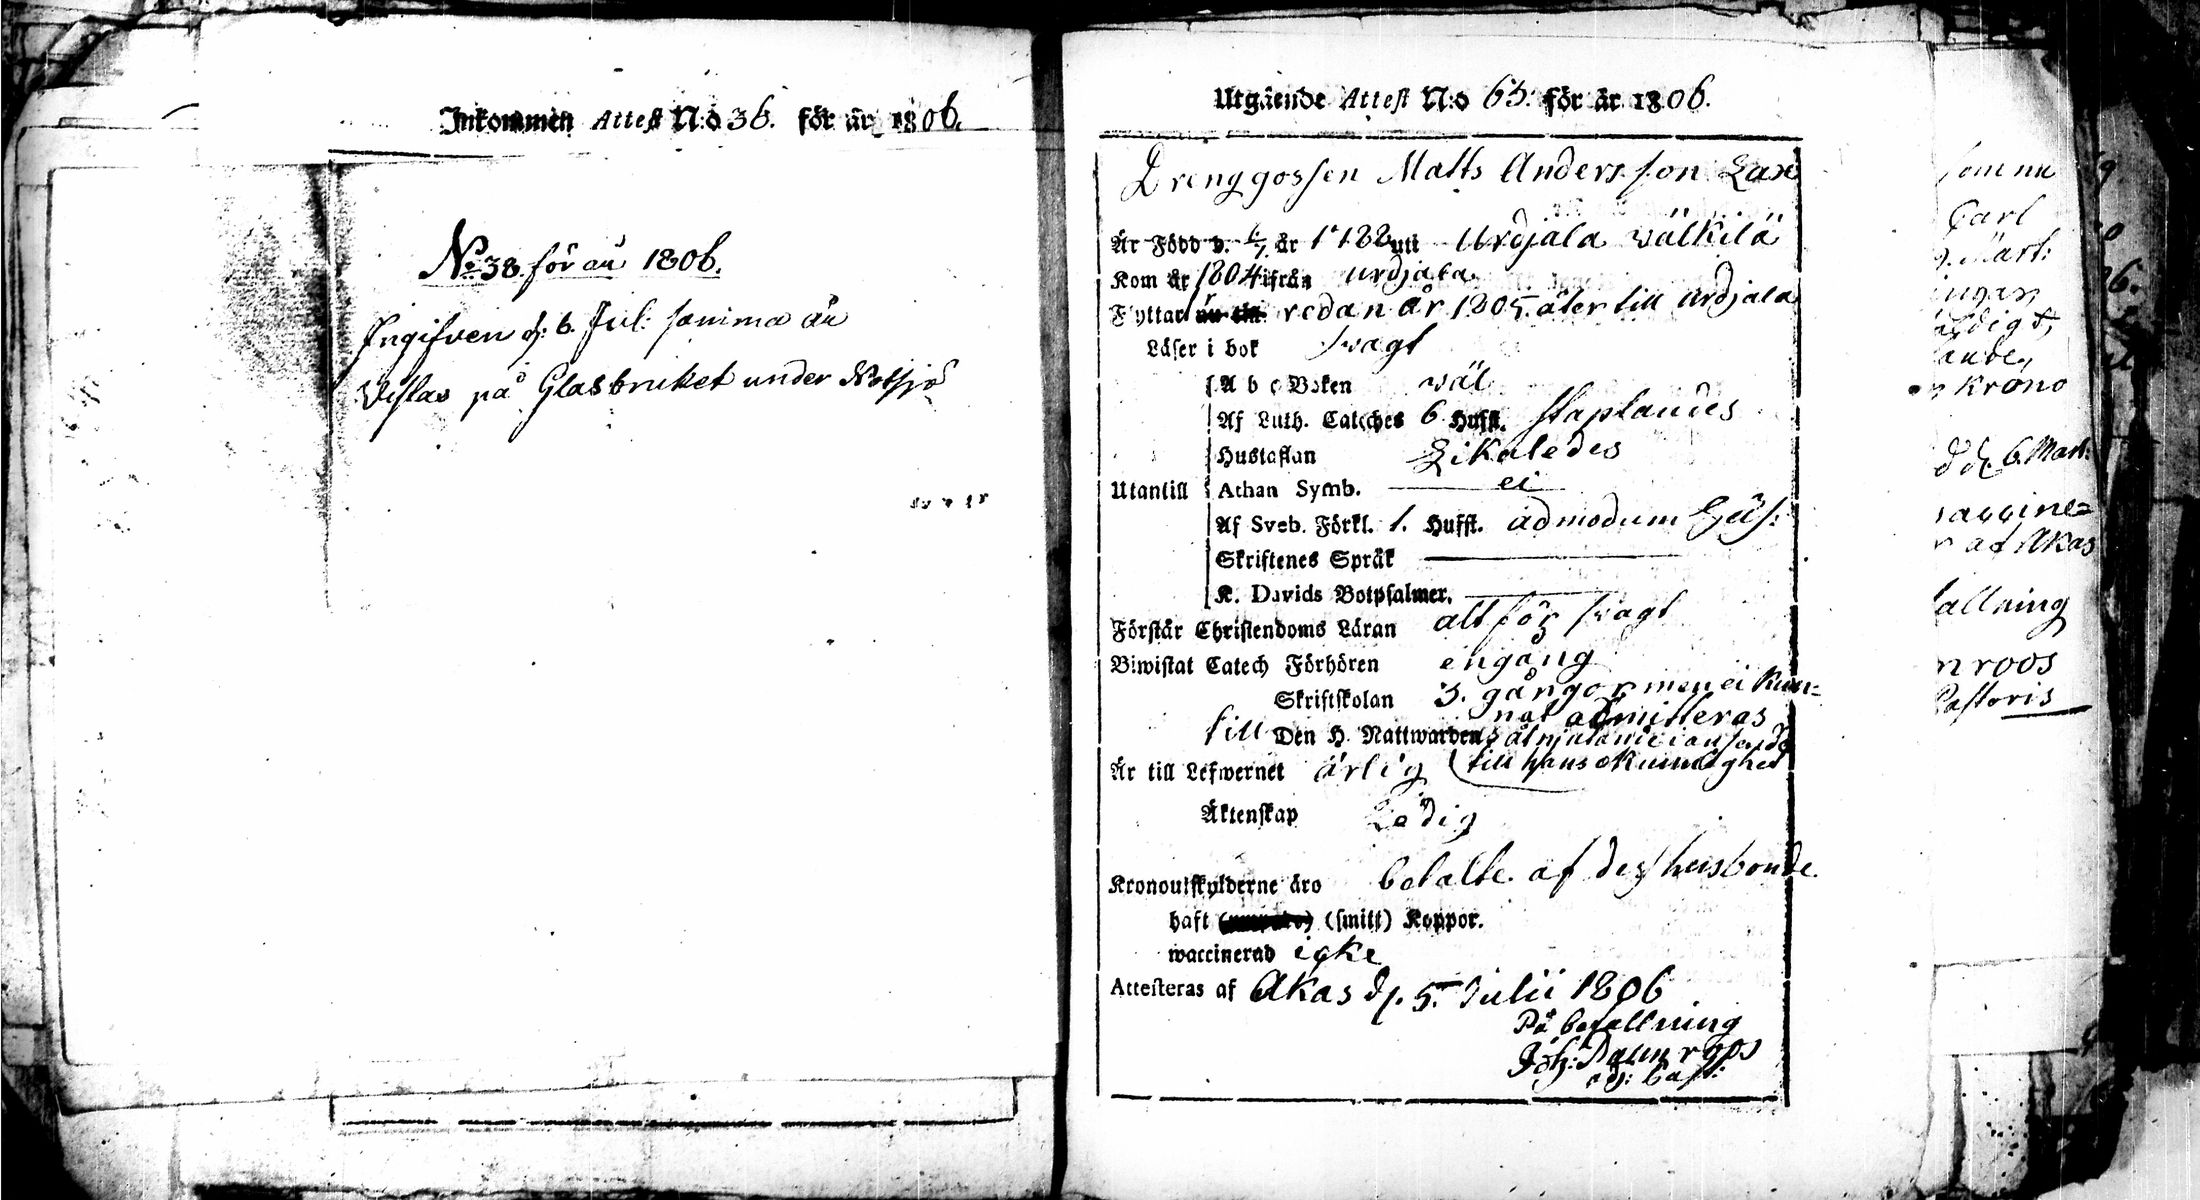 Inkommen Attest N:o 36. för år 1806.
No 38. för åu 1806.
Ingifven d: 6 Jul: samma åu
Vistas på Glasbruket under Notsjö
Utgående Attest N:o 65. för år 1806.
Drenggossen Matts Andersson Lax
Är Född d. år 1788 uti Urdjala wälkilä
Kom år 1804 ifrån urdjala
Flyttar redan år 1805 åter till Urdjala
Läser i bok swagt
A b c Boken wäl
Af Luth. Cateches 6 Hufst. staplandes
Hustaflan Likaledes
Utantill Athan Symb. ei
Af Sveb. Förkl. 1. Hufst. admodum
Skriftenes Språk
K. Davids Botpsalmer.
Förstår Christendoms Läran alt för swagt
Biwistat Catech Förhören engång
Skriftskolan 3. gångor men ei kun=
nat admitteras
till Den H. Nattwarden
Är till Lefwernet ärlig till hans okunnighet
Äktenskap Ledig
Kronoutskylderne äro betalte af dess husbonde.
haft (smitt) Koppor.
waccinerad icke
Attesteras af Akas d. 5. Julii 1806
På befallning
Joh: Palmroos
som nu
Carl
krono
d. 6. Mart:
vaccine=
af Akas
allning
nroos
Pastoris